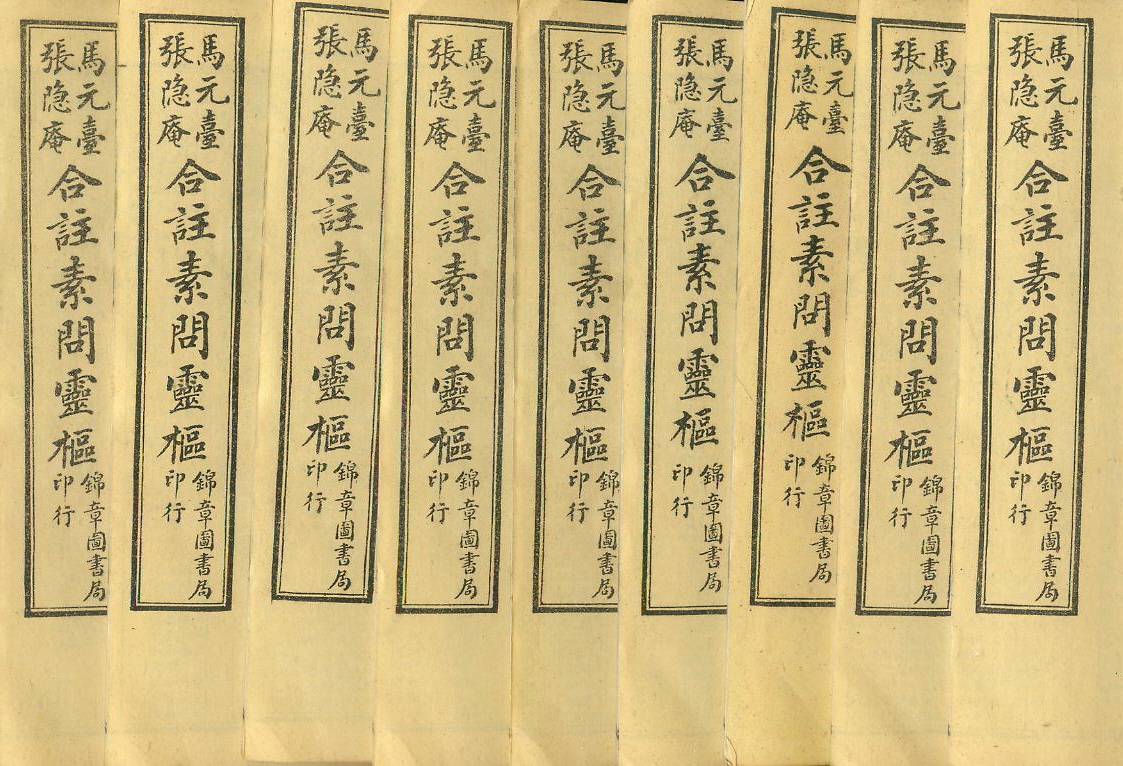 馬元臺
張隐庵
合註素問靈樞
錦章圖書局
印行
馬元臺
張隐庵
合註素問靈樞
錦章圖書局
印行
馬元臺
張隐庵
合註素問靈樞
錦章圖書局
印行
馬元臺
張隐庵
合註素問靈樞
錦章圖書局
印行
馬元臺
張隐庵
合註素問靈樞
錦章圖書局
印行
馬元臺
張隐庵
合註素問靈樞
錦章圖書局
印行
馬元臺
張隐庵
合註素問靈樞
錦章圖書局
印行
馬元臺
張隐庵
合註素問靈樞
錦章圖書局
印行
馬元臺
張隐庵
合註素問靈樞
錦章圖書局
印行